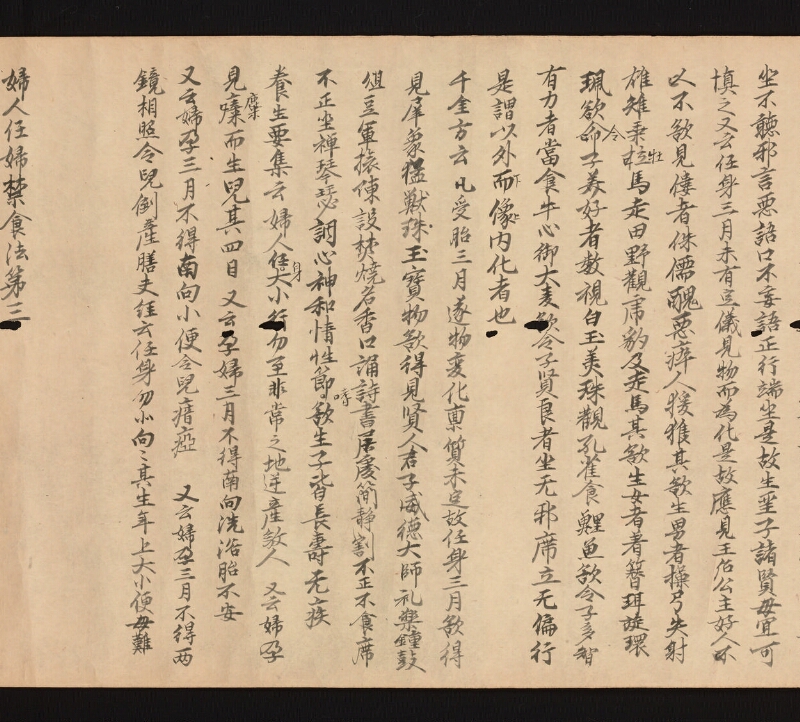 坐不聽邪言惡語口不妄語正行端坐是故生聖子諸賢母宜可
慎之又云任身三月未有定儀見物而為化是故應見王后公主好人不
欲見僂者侏儒醜惡瘁人猨猴其欲生男者操弓矢射
雄雉乘牡馬走田野觀虎豹及走馬其欲生女者著簪珥施環
珮欲令子美好者數視白玉美珠觀孔雀食鯉魚欲令子多智
有力者當食牛心御大麦欲令子賢良者坐无邪席立无偏行
是謂以外而像内化者也
千金方云凡受胎三月遂物変化稟質未定故任身三月欲得
見犀象猛獸珠玉寶物欲得見賢人君子盛德大師礼樂鍾鼓
俎豆軍旅陳設焚燒名香口誦詩書居處簡静割不正不食席
不正不坐禅琴瑟調心神和情性節嗜欲生子皆長壽无疾
養生要集云婦人任身大小行勿至非常之地逆產殺人 又云婦孕
見麋而生兒其四目 又云孕婦三月不得南向洗浴胎不安
又云婦孕三月不得南向小便令兒瘖瘂 又云婦孕三月不得兩
鏡相照令兒倒產膳夫経云任身勿小向〻其生年上大小便毋難
婦人任婦禁食法第三